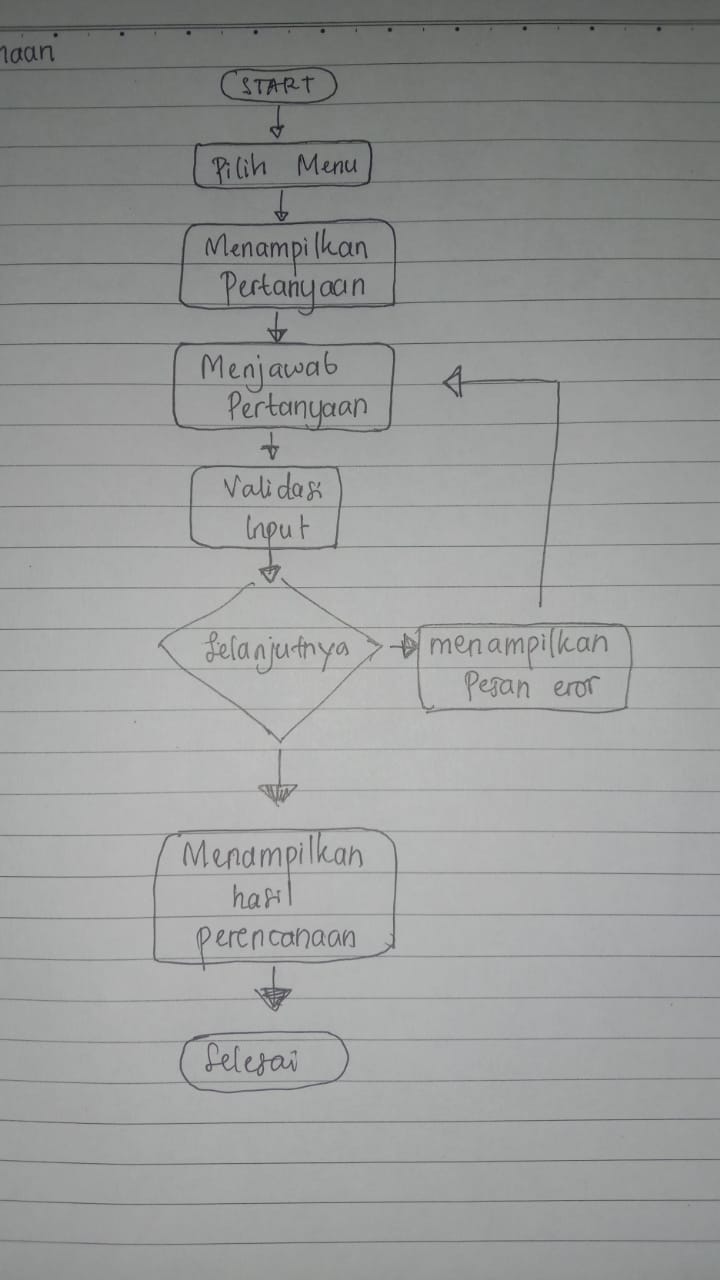 naan
START
Pilih Menu
Menampilkan
Pertanyaan
Menjawab
Pertanyaan
Validasi
Input
Selanjutnya
menampilkan
Pesan eror
Menampilkan
hasil
perencanaan
Selesai